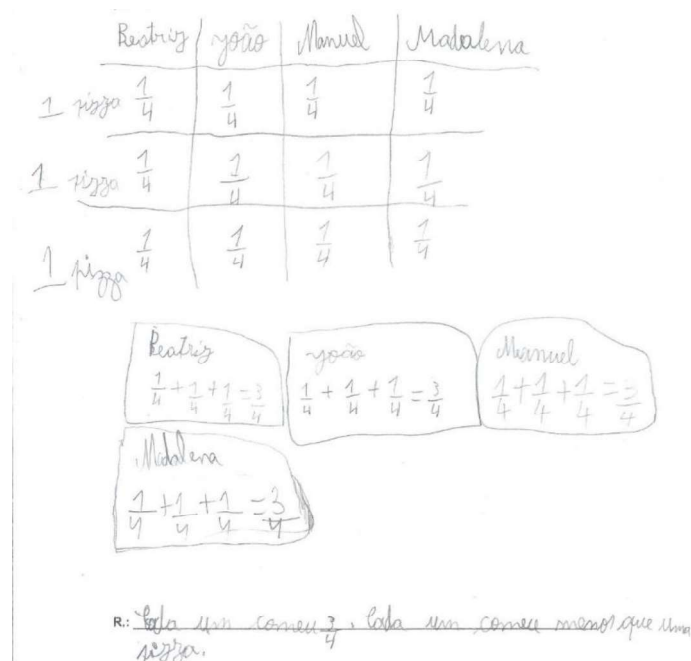 Beatriz João Manuel Madalena
1 pizza 1/4 1/4 1/4 1/4
1 pizza 1/4 1/4 1/4 1/4
1 pizza 1/4 1/4 1/4 1/4
Beatriz João Manuel
1/4 + 1/4 + 1/4 = 3/4 1/4 + 1/4 + 1/4 = 3/4 1/4 + 1/4 + 1/4 = 3/4
Madalena
1/4 + 1/4 + 1/4 = 3/4
R.: Cada um comeu 3/4, Cada um comeu menos que uma
pizza.